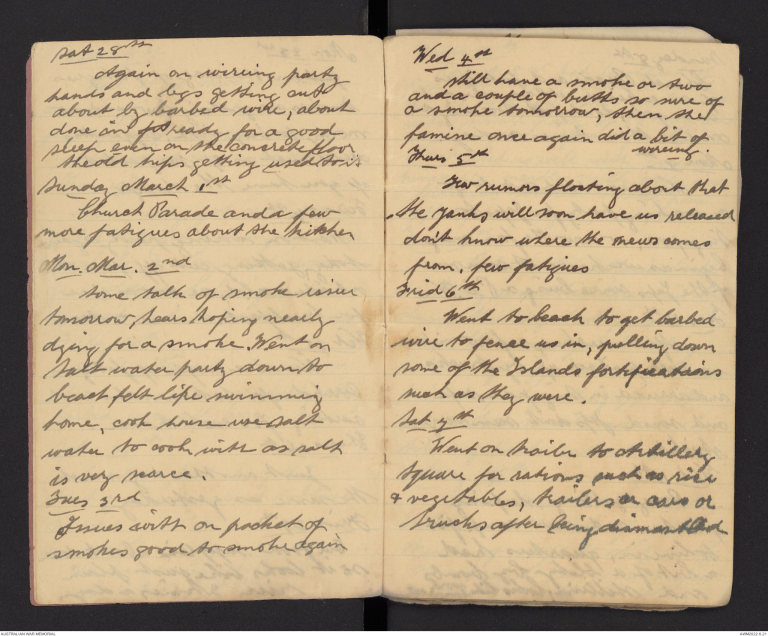 Sat 28th
Again on wireing party
hands and legs getting cut
about by barbed wire, about
done in for ready for a good
sleep even on the concrete floor
the old hips getting used to it
Sunday March 1st
Church Parade and a few
more fatigues about the kitchen
Mon. Mar. 2nd
Some talk of smoke issue
tomorrow, hears hoping nearly
dying for a smoke. Went on
salt water party down to
beach felt like swimming
home, cook house use salt
water to cook with as salt
is very scarce.
Tues 3rd
Issues with on packet of
smokes good to smoke again
Wed 4st
Still have a smoke or two
and a couple of butts so sure of
a smoke tomorrow, then the
famine once again did a bit of
wireing.
Thurs 5th
Few rumors floating about that
the yanks will soon have us released
don't know where the news comes
from. few fatigues
Frid 6th
Went to beach to get barbed
wire to fence us in, pulling down
some of the Islands fortifications
such as they were.
Sat 7th
Went on trailer to Artillery
Square for rations such as rice
& vegetables, trailers or cars or
trucks after being dismantled
AUSTRALIAN WAR MEMORIAL
AWM2022.6.21